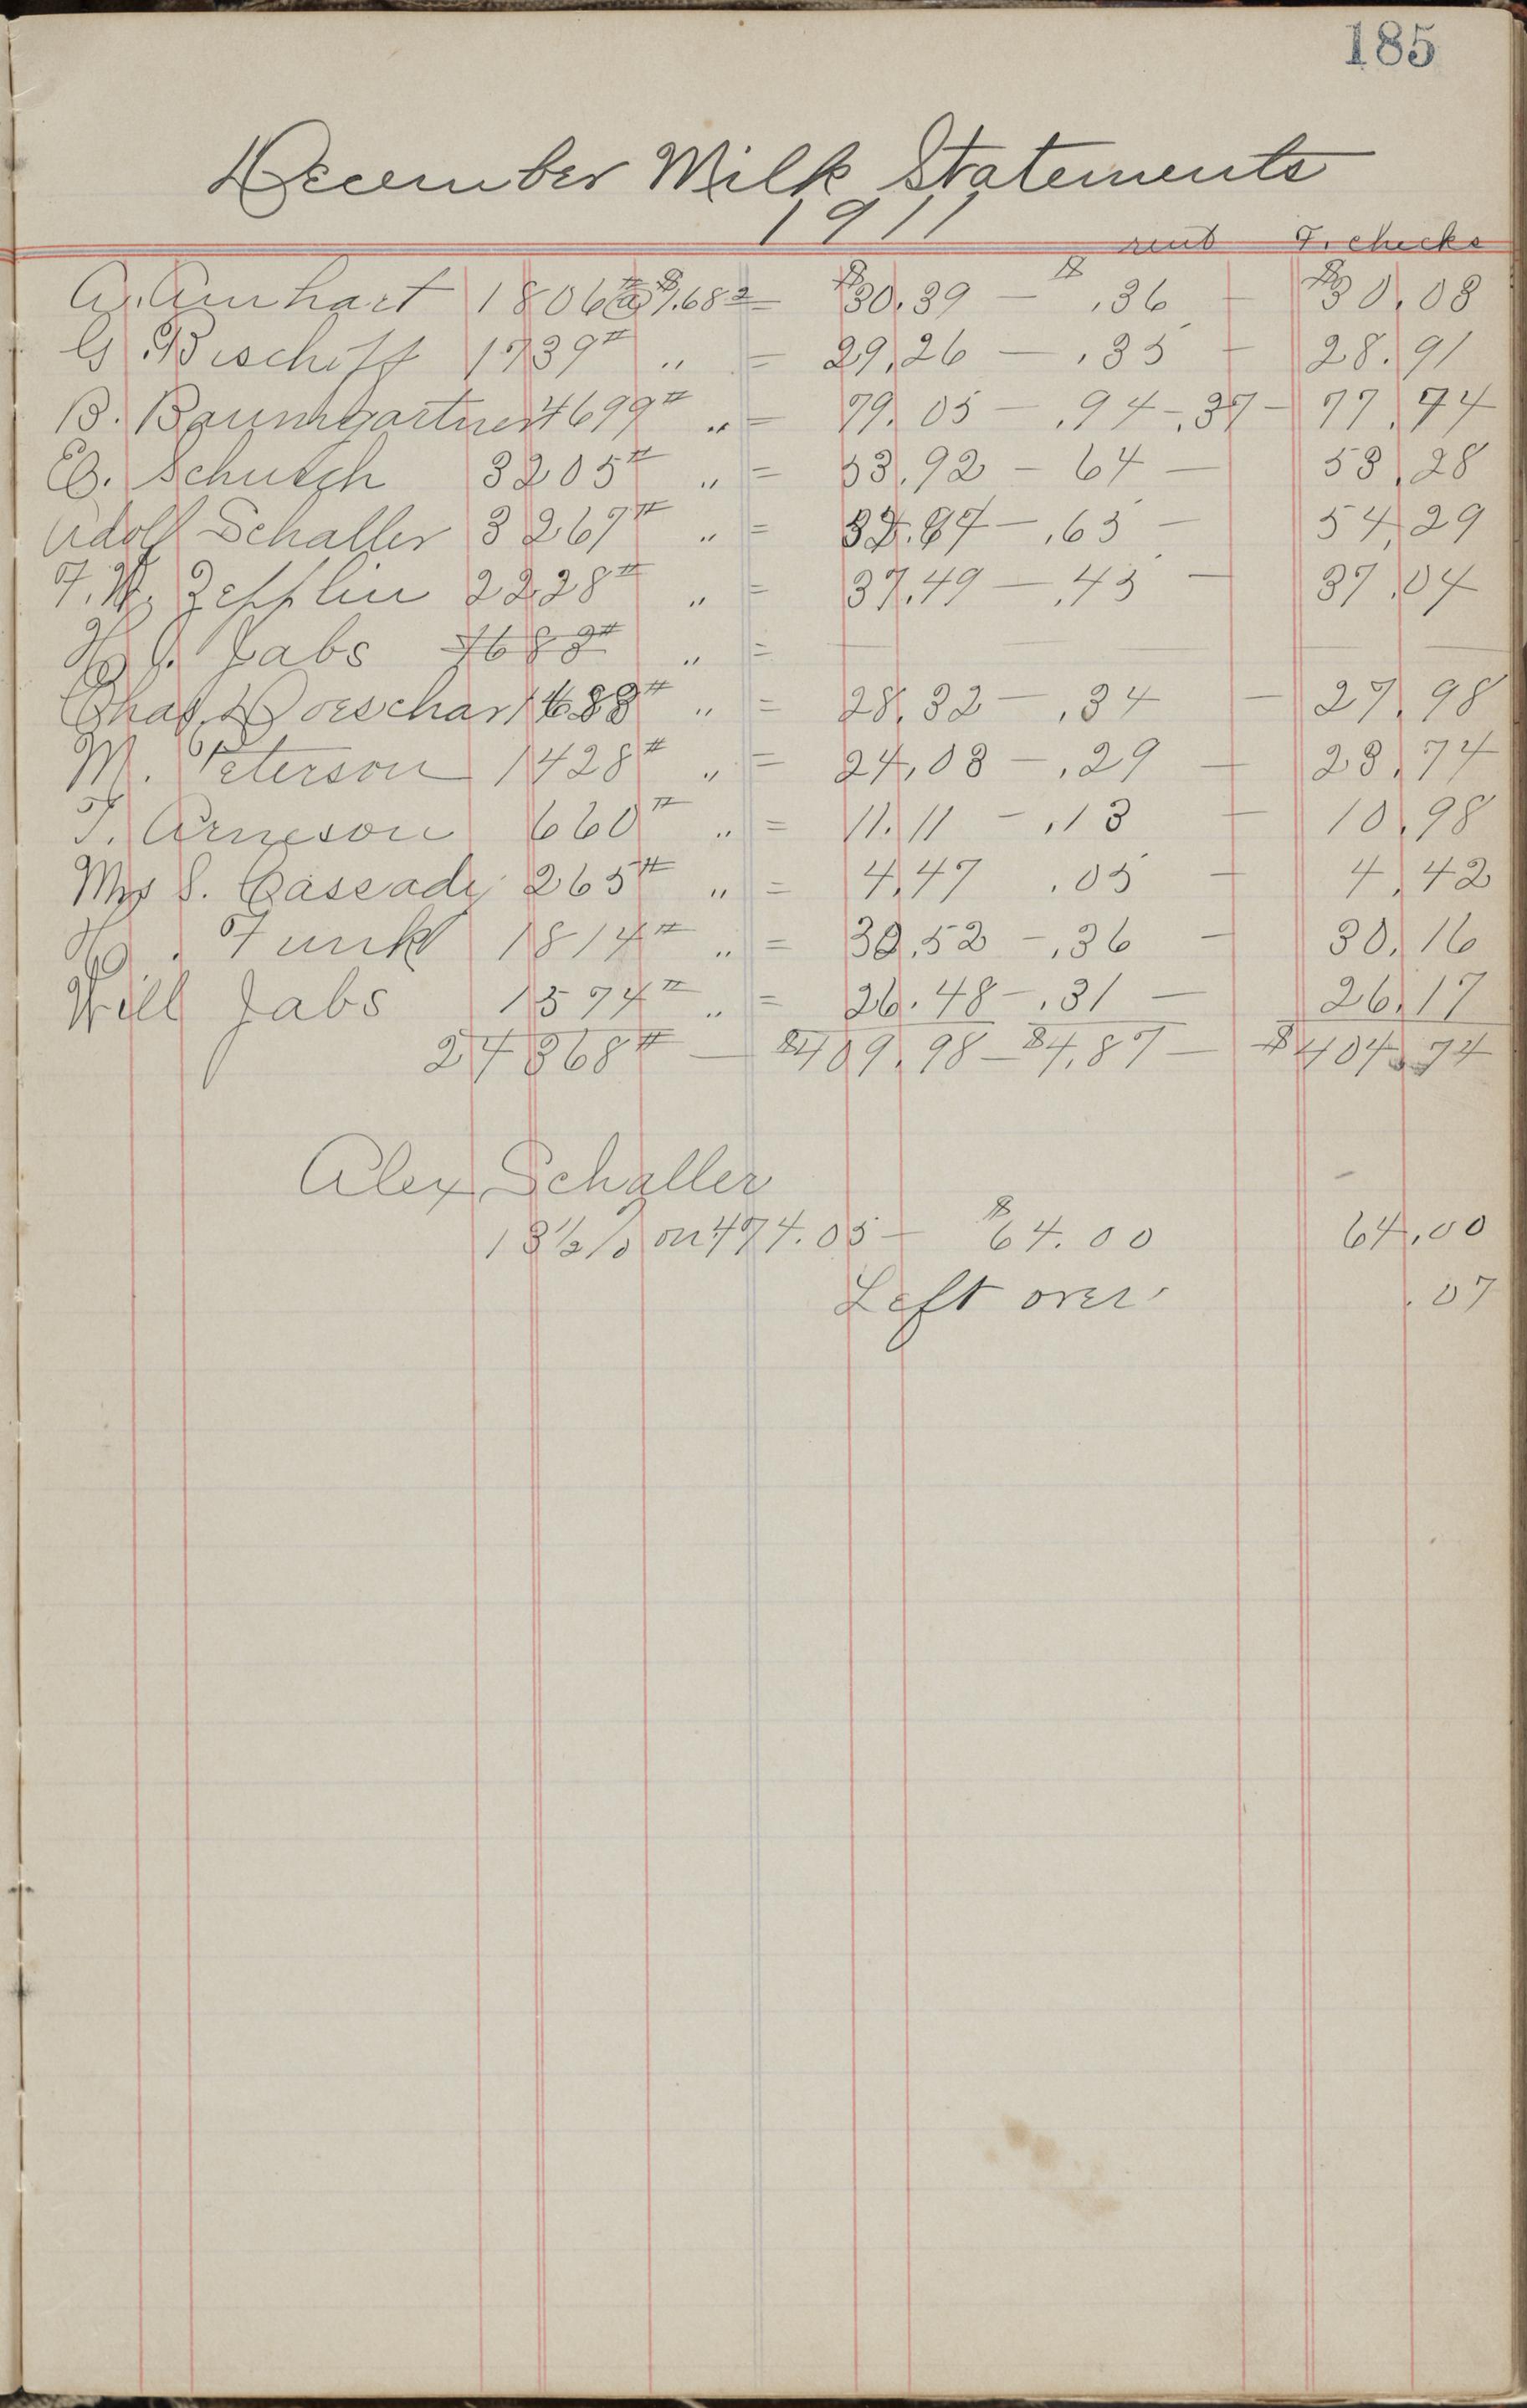 185
December Milk Statements
1911
rent F. checks
A. Amhart 1806# @ $1.68 2 = $30.39 — $.36 — $30.03
G. Bischoff 1739# " = 29.26 — .35 — 28.91
B. Baumgartner 4699# " = 79.05 — .94 — .37 — 77.74
E. Schutch 3205# " = 53.92 — 64 — 53.28
Adolf Schaller 3267# " = — .65 — 54.29
F. W. Zepplin 2228# " = 37.49 — .45 — 37.04
H. J. Jabs 1683# " =
Chas. Dorschar 1683# " = 28.32 — .34 — 27.98
M. Peterson 1428# " = 24.03 — .29 — 23.74
T. Arneson 660# " = 11.11 — .13 — 10.98
Mrs S. Cassady 265# " = 4.47 .05 — 4.42
H. Funk 1814# " = 30.52 — .36 — 30.16
Will Jabs 1574# " = 26.48 — .31 — 26.17
24368# — $409.98 — $4.87 — $404.74
Alex Schaller
13 1/2 % on 474.05 — $64.00 64.00
Left over .07